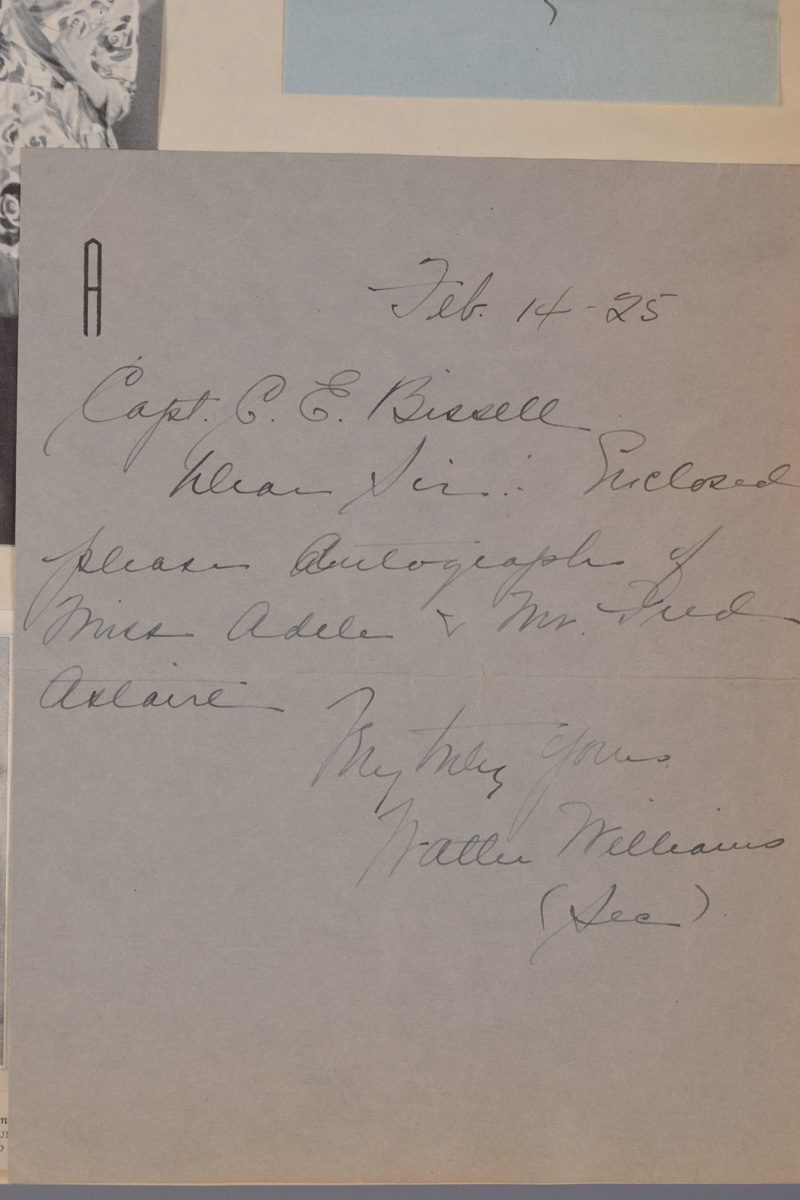 A
Feb. 14-25
Capt. C. E. Bissell
Dear Sir:. Enclosed
please Autographs of
Miss Adele & Mr. Fred
Astaire
Very truly yours
Walter Williams
(Sec)